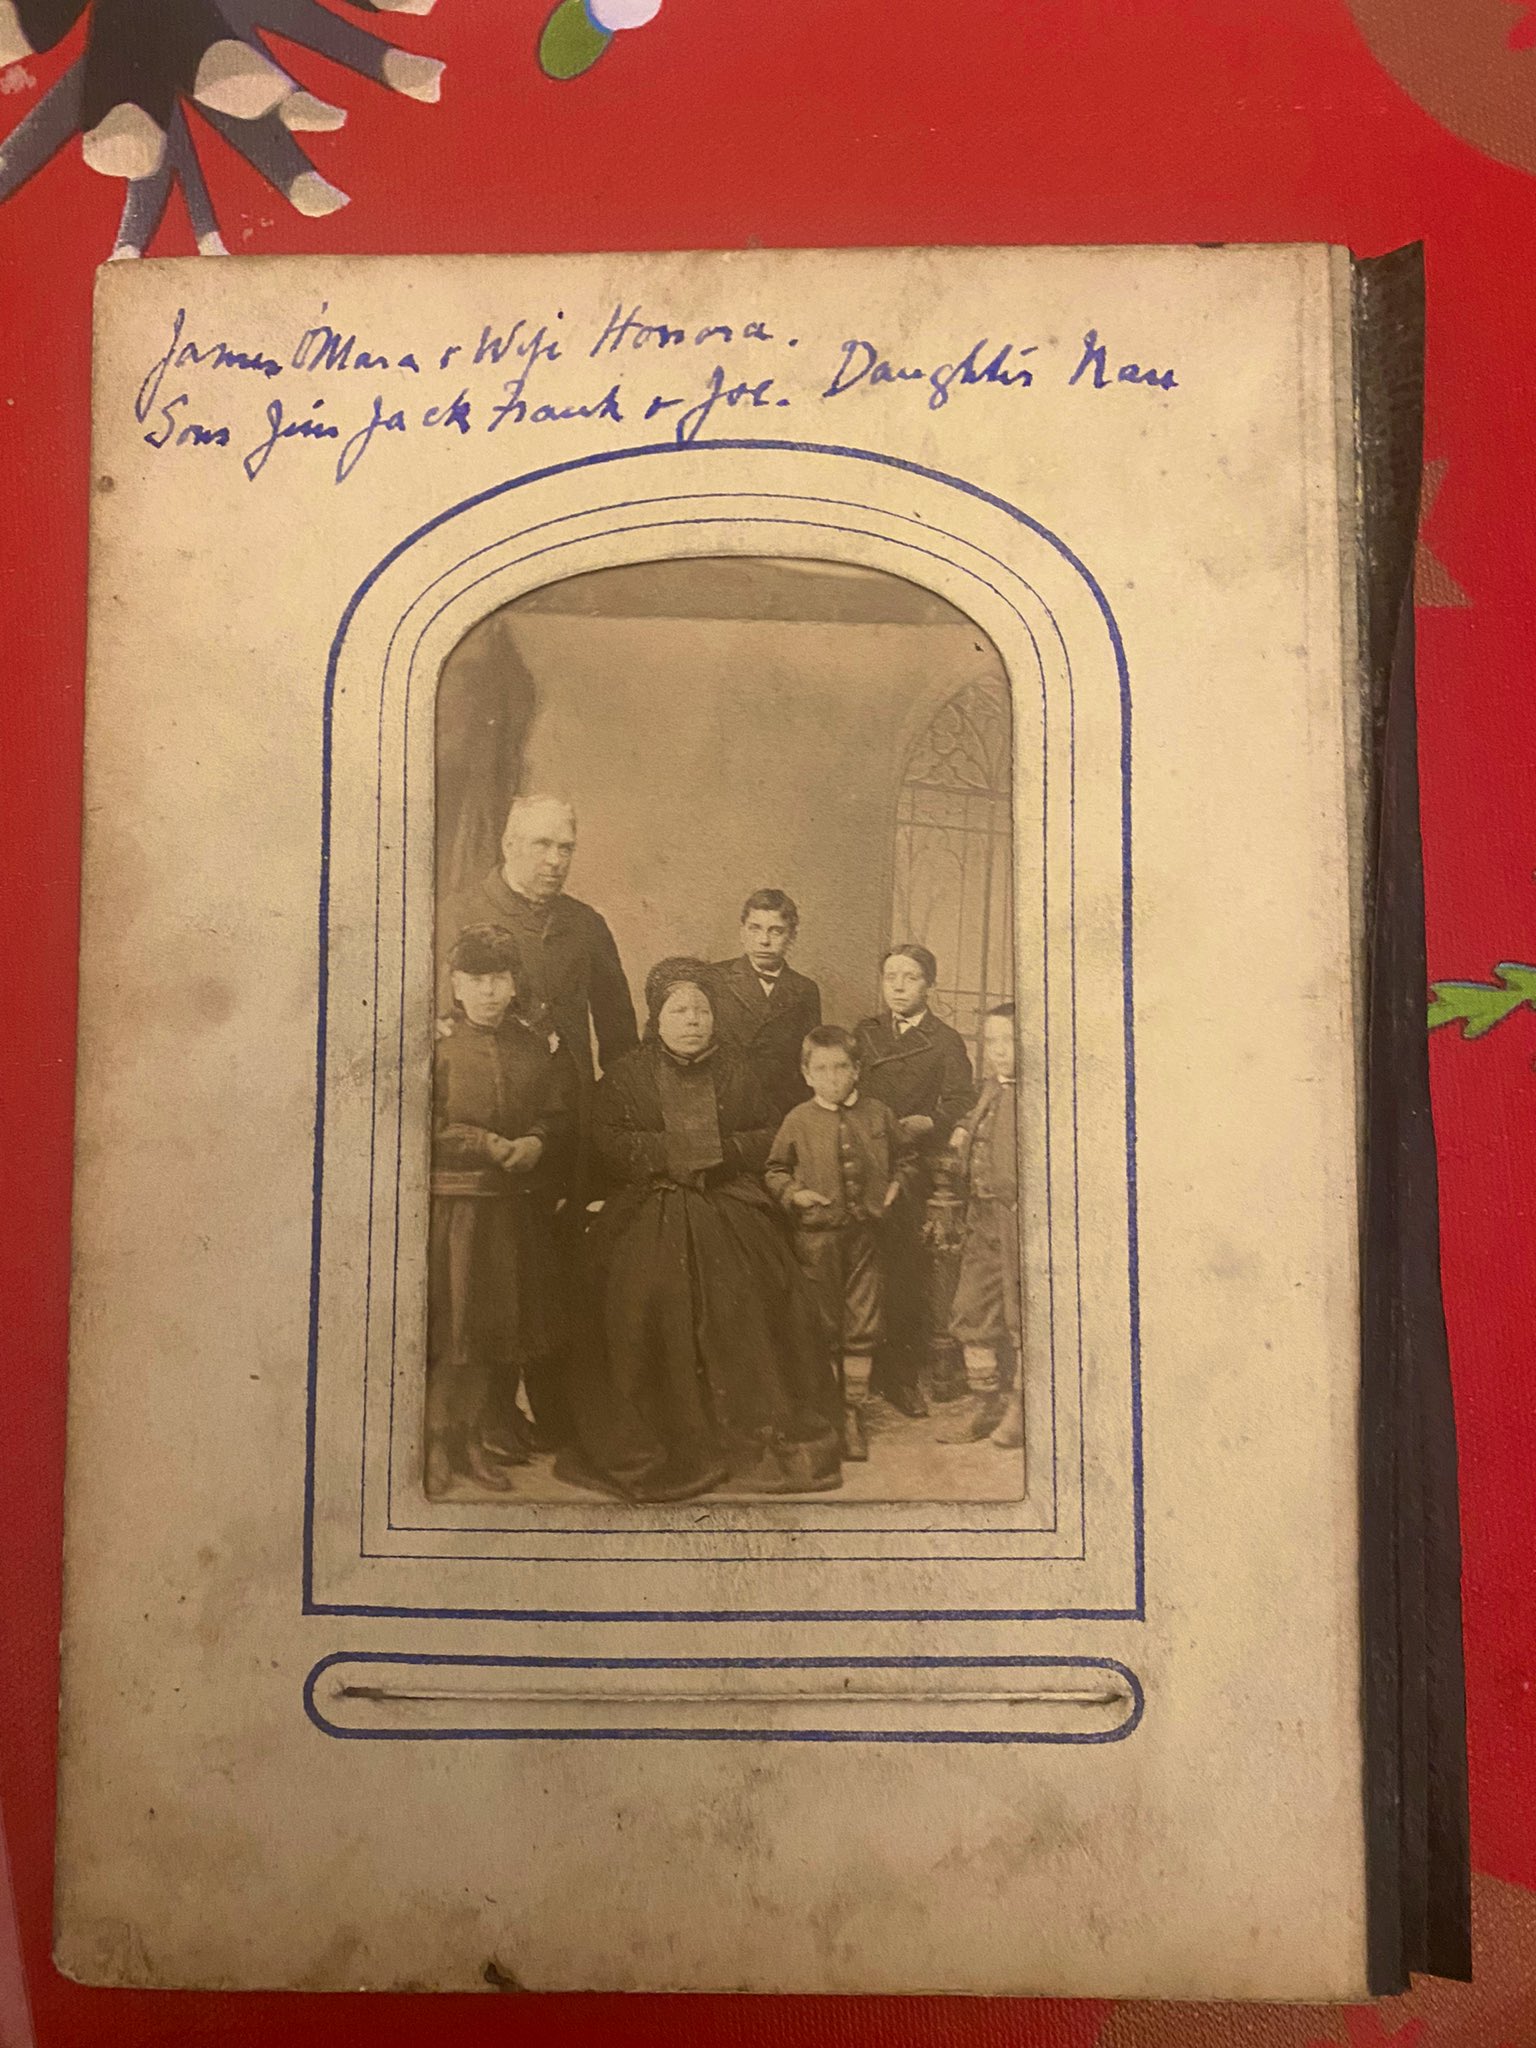 James O'Mara & Wife Honora.
Sons Jim Jack Frank & Joe. Daughter Nan